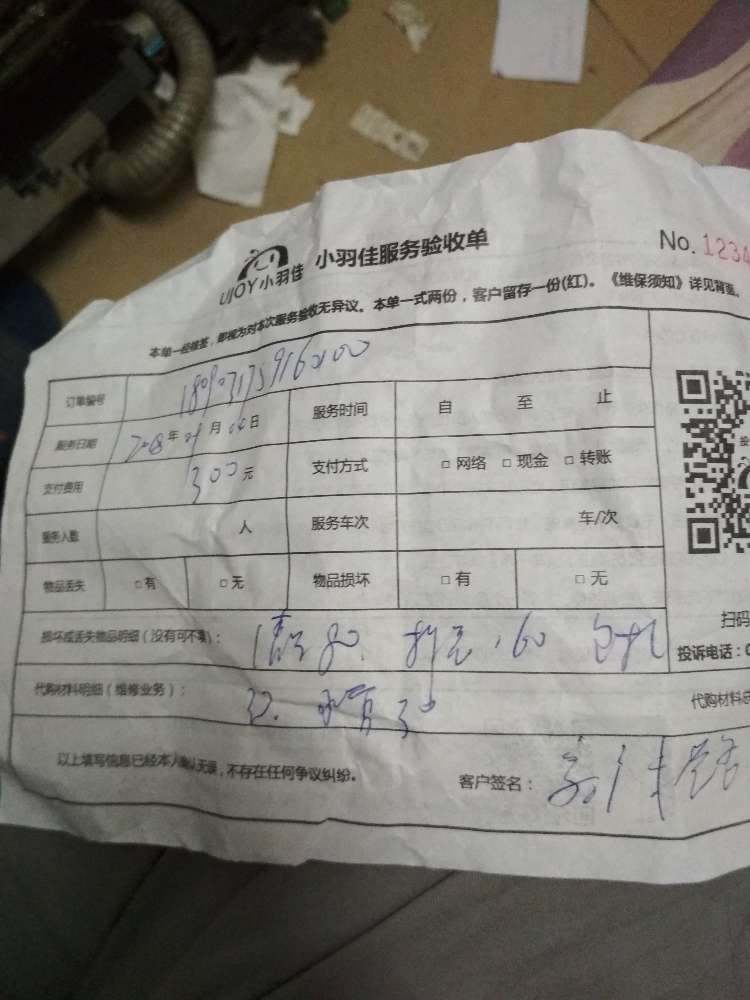 UJOY小羽佳 小羽佳服务验收单 No.1234
本单一经签签，即视为对本次服务验收无异议。本单一式两份，客户留存一份(红)。《维保须知》详见背面。
订单编号
服务日期 2018年09月04日 服务时间 自 至 止
支付费用 300元 支付方式 □网络 □现金 □转账
服务人数 人 服务车次 车/次
物品丢失 □有 □无 物品损坏 □有 □无
扫码
损坏或丢失物品明细（没有可不填）： 80. 60 投诉电话：0
代购材料明细（维修业务）： 水管 代购材料
以上填写信息已经本人确认无误，不存在任何争议纠纷。 客户签名：